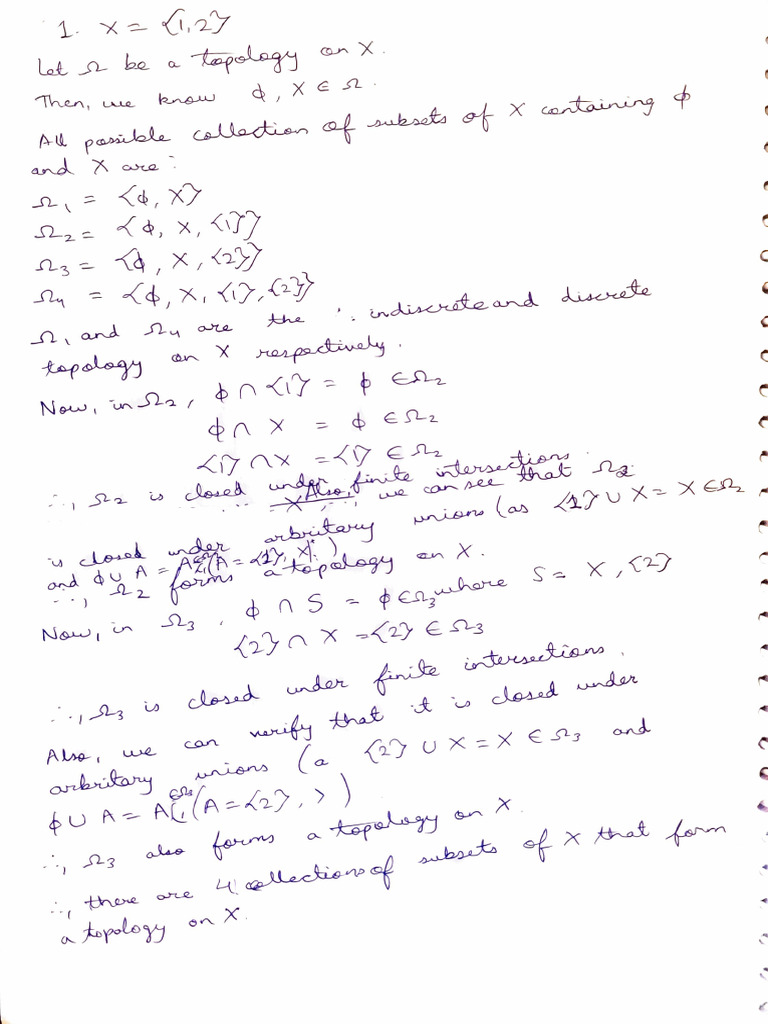 1. X = {1,2}
Let Ω be a topology on X.
Then, we know ϕ, X ∈ Ω.
All possible collection of subsets of X containing ϕ
and X are:
Ω₁ = {ϕ, X}
Ω₂ = {ϕ, X, {1}}
Ω₃ = {ϕ, X, {2}}
Ω₄ = {ϕ, X, {1}, {2}}
Ω₁ and Ω₄ are the indiscrete and discrete
topology on X respectively.
Now, in Ω₂, ϕ ∩ {1} = ϕ ∈ Ω₂
ϕ ∩ X = ϕ ∈ Ω₂
{1} ∩ X = {1} ∈ Ω₂
∴, Ω₂ is closed under finite intersections.
Also, we can see that Ω₂
is closed under arbritary unions (as {1} ∪ X = X ∈ Ω₂
and ϕ ∪ A = A ∈ Ω₂ (A = {1}, X))
∴, Ω₂ forms a topology on X.
Now, in Ω₃, ϕ ∩ S = ϕ ∈ Ω₃ where S = X, {2}
{2} ∩ X = {2} ∈ Ω₃
∴, Ω₃ is closed under finite intersections.
Also, we can verify that it is closed under
arbritary unions (a {2} ∪ X = X ∈ Ω₃ and
ϕ ∪ A = A ∈ Ω₃ (A = {2}, )
∴, Ω₃ also forms a topology on X.
∴, there are 4 collections of subsets of X that form
a topology on X.